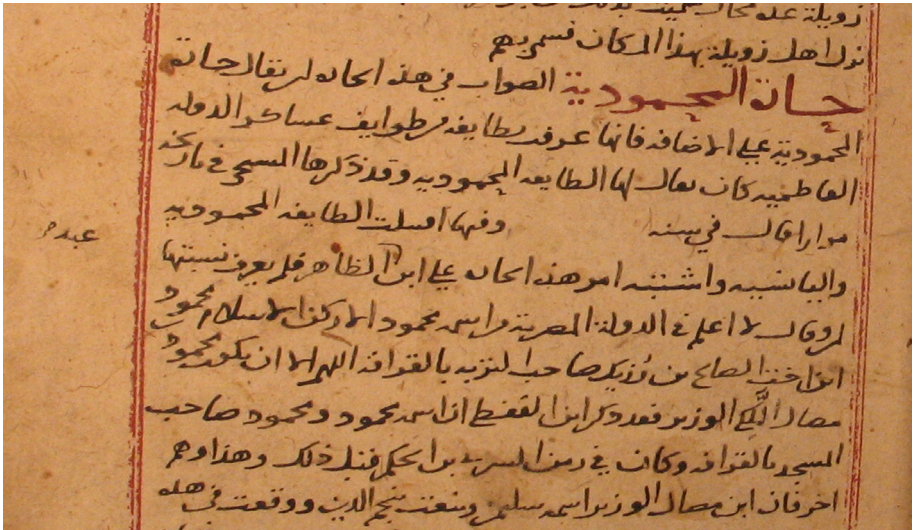 زويلة
نزل اهل زويلة بهذا المكان فسمى بهم
حارة المحمودية الصواب في هذه الحاره ان يقال حارة
المحمودية على الاضافه فانها عرفت بطايفه من طوايف عساكر الدوله
الفاطميه كان يقال لها الطايفه المحموديه وقد ذكرها المسبحى في تاريخه
مرارا قال في سنه وفيها اقتتلت الطايفه المحموديه
واليانسيه واشتبه امر هذه الحاره على ابن عبد الظاهر فلم يعرف نسبتها
لمن وقال لا اعلم في الدولة المصرية من اسمه محمود الا ركن الاسلام محمود
ابن اخت الصالح بن رزيك صاحب التربه بالقرافه اللهم الا ان يكون محمود
مصال اللكي الوزير فقد ذكر ابن القفطي ان اسمه محمود ومحمود صاحب
المسجد بالقرافه وكان في زمن السرى بن الحكم قبل ذلك وهذا وهم
اخر فان ابن مصال الوزير اسمه سليم وينعت بنجم الدين ووقعت في هذه